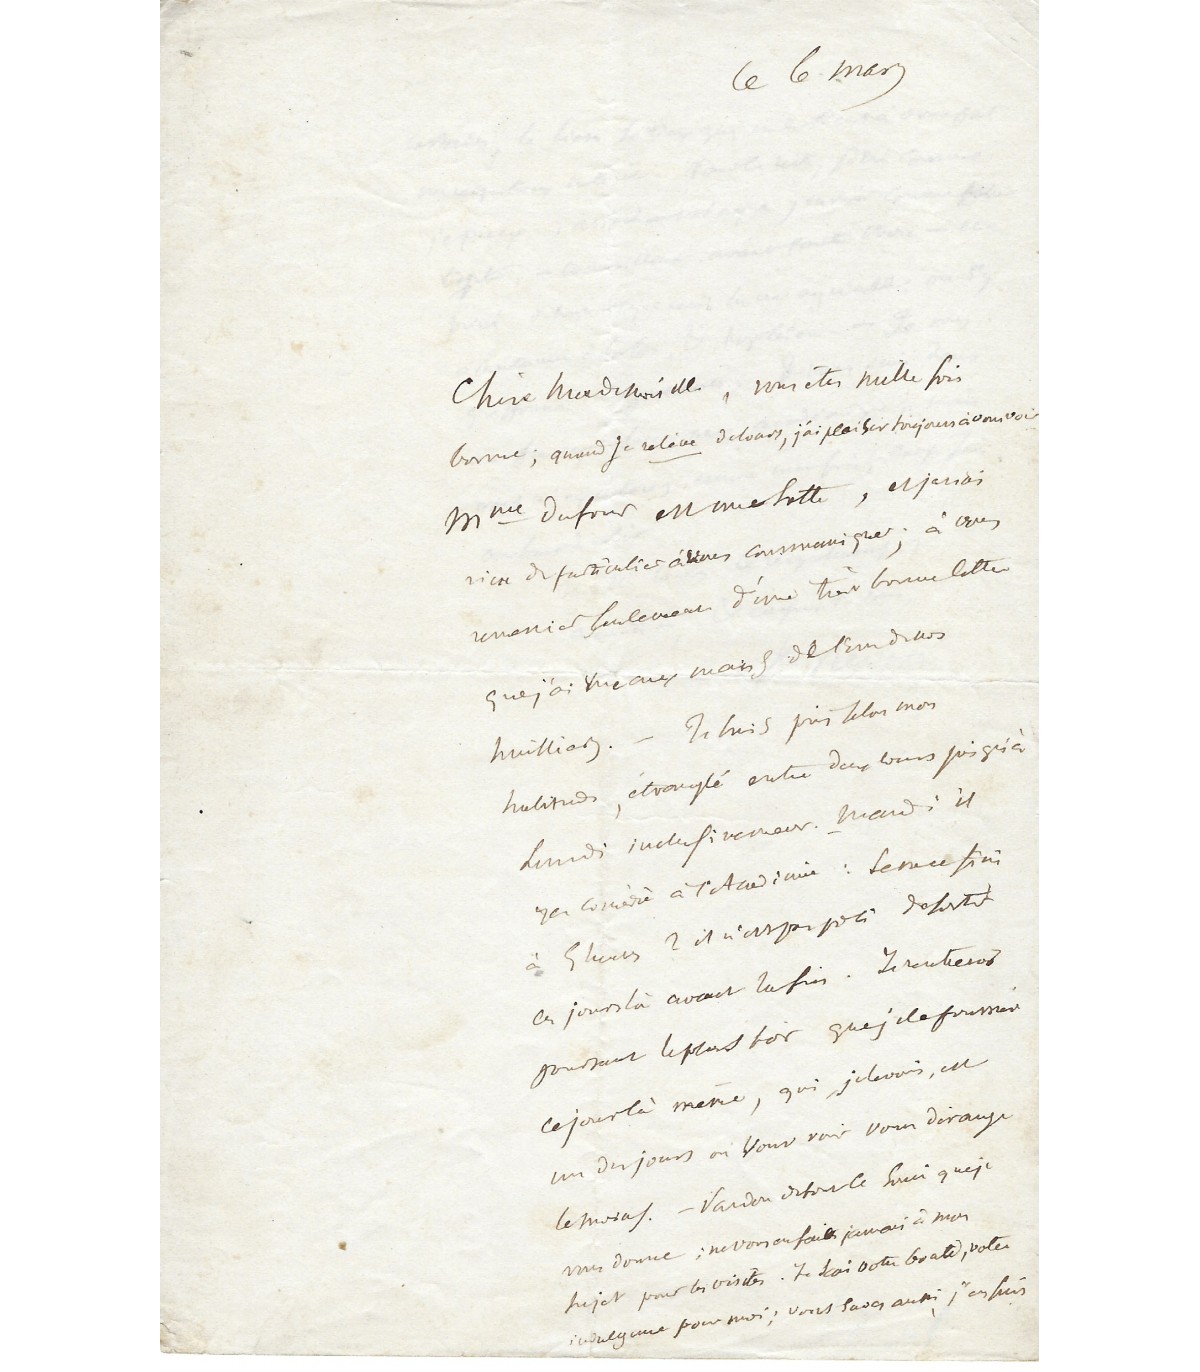 ce 6 mars
Chère Mademoiselle, vous êtes mille fois
bonne; quand je relève de cours, j'ai plaisir toujours à vous voir
Mme Dufour est une sotte, et je n'ai
rien de particulier à vous communiquer; à vous
remercier seulement d'une très bonne lettre
que j'ai vue aux mains de l'un de nos
. — Je suis pris selon mon
habitude, étranglé entre deux cours jusqu'à
Lundi inclusivement. Mardi il
y a comédie à l'Académie: sera-ce fini
à 5 heures? il n'est pas poli de sortir
ces jours là avant la fin. Je
pourtant le plus tôt que je le pourrai
ce jour là même, qui, je le vois, est
un des jours où vous voir vous dérange
le moins. — Pardon de tout le souci que je
vous donne; ne vous en faites jamais à mon
sujet pour les visites. Je sais votre bonté, votre
indulgence pour moi; vous savez aussi, j'en suis